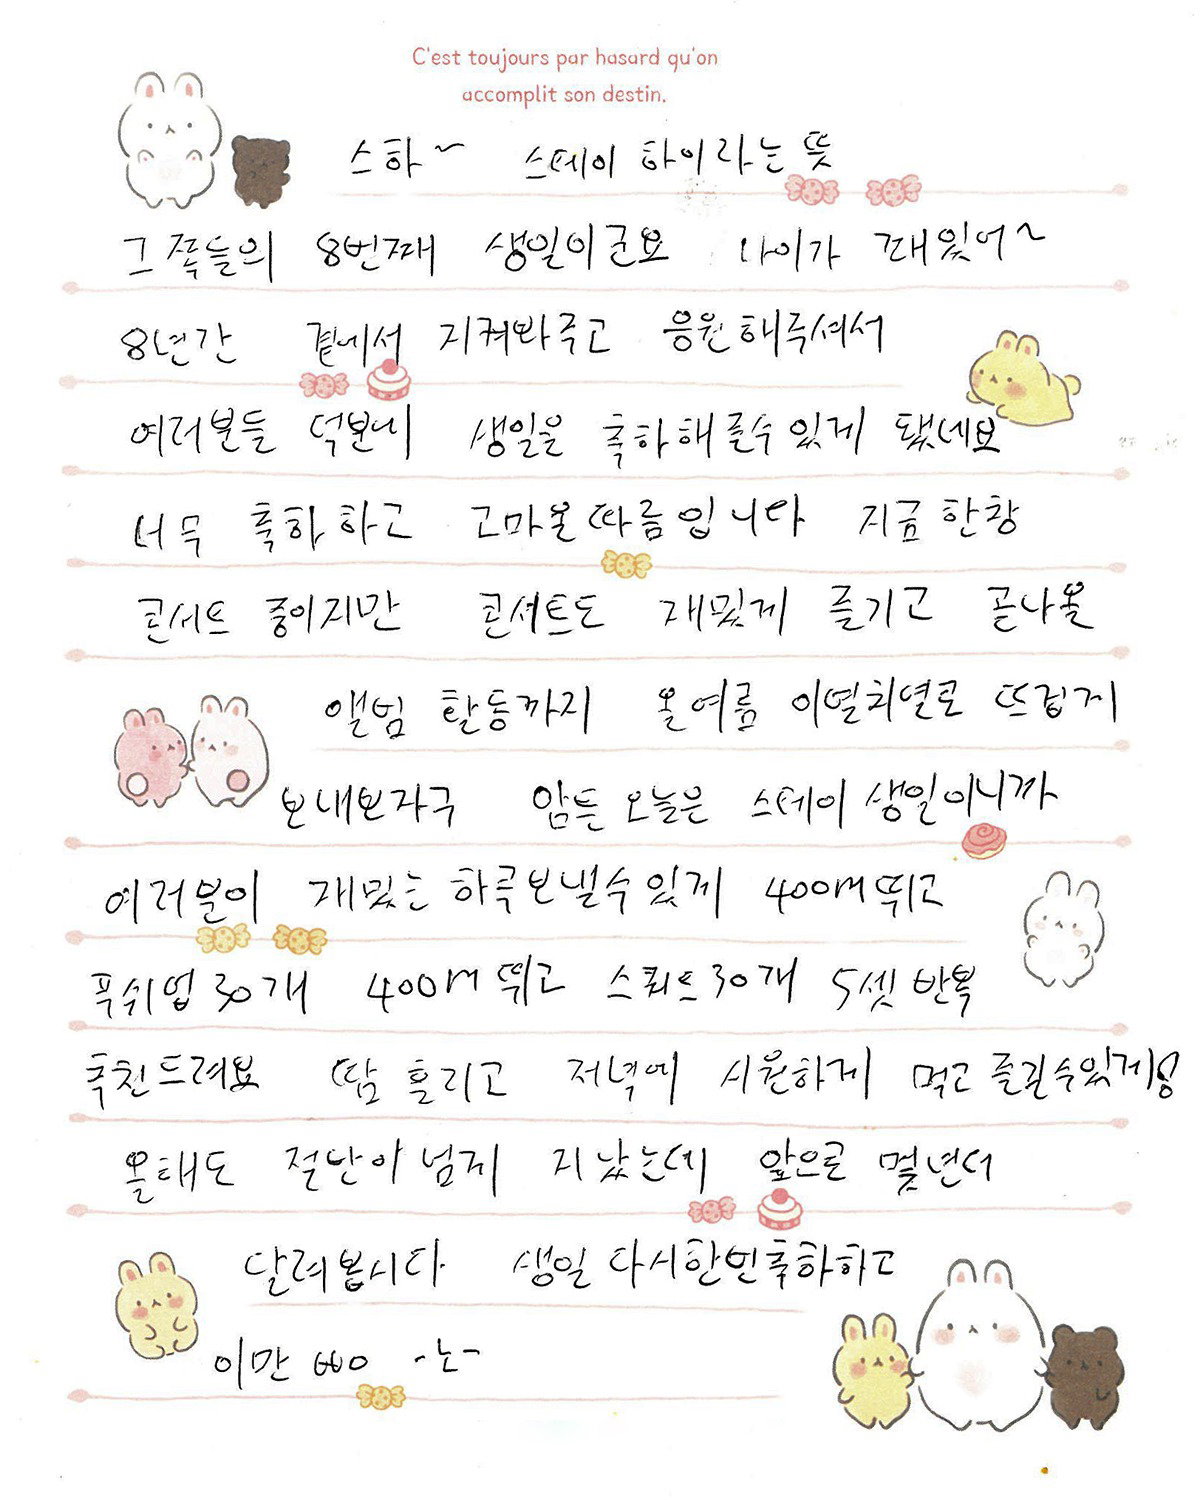 C'est toujours par hasard qu'on
accomplit son destin.
스하~ 스테이 하이라는 뜻
그쪽들의 8번째 생일이군요 나이가 꽤있어~
8년간 곁에서 지켜봐주고 응원해주셔서
여러분들 덕분에 생일을 축하해줄수있게 됐네요
너무 축하하고 고마울따름입니다 지금한창
콘서트 중이지만 콘서트도 재밌게 즐기고 곧나올
앨범 활동까지 올여름 이열치열로 뜨겁게
보내보자구 암튼 오늘은 스테이 생일이니까
여러분이 재밌는 하루보낼수있게 400M뛰고
푸쉬업 30개 400M 뛰고 스쿼트30개 5셋 반복
추천드려요 땀 흘리고 저녁에 시원하게 먹고 즐길수있게!
올해도 절반이 넘게 지났는데 앞으로 몇년더
달려봅시다 생일 다시한번축하하고
이만 뿅 -노-